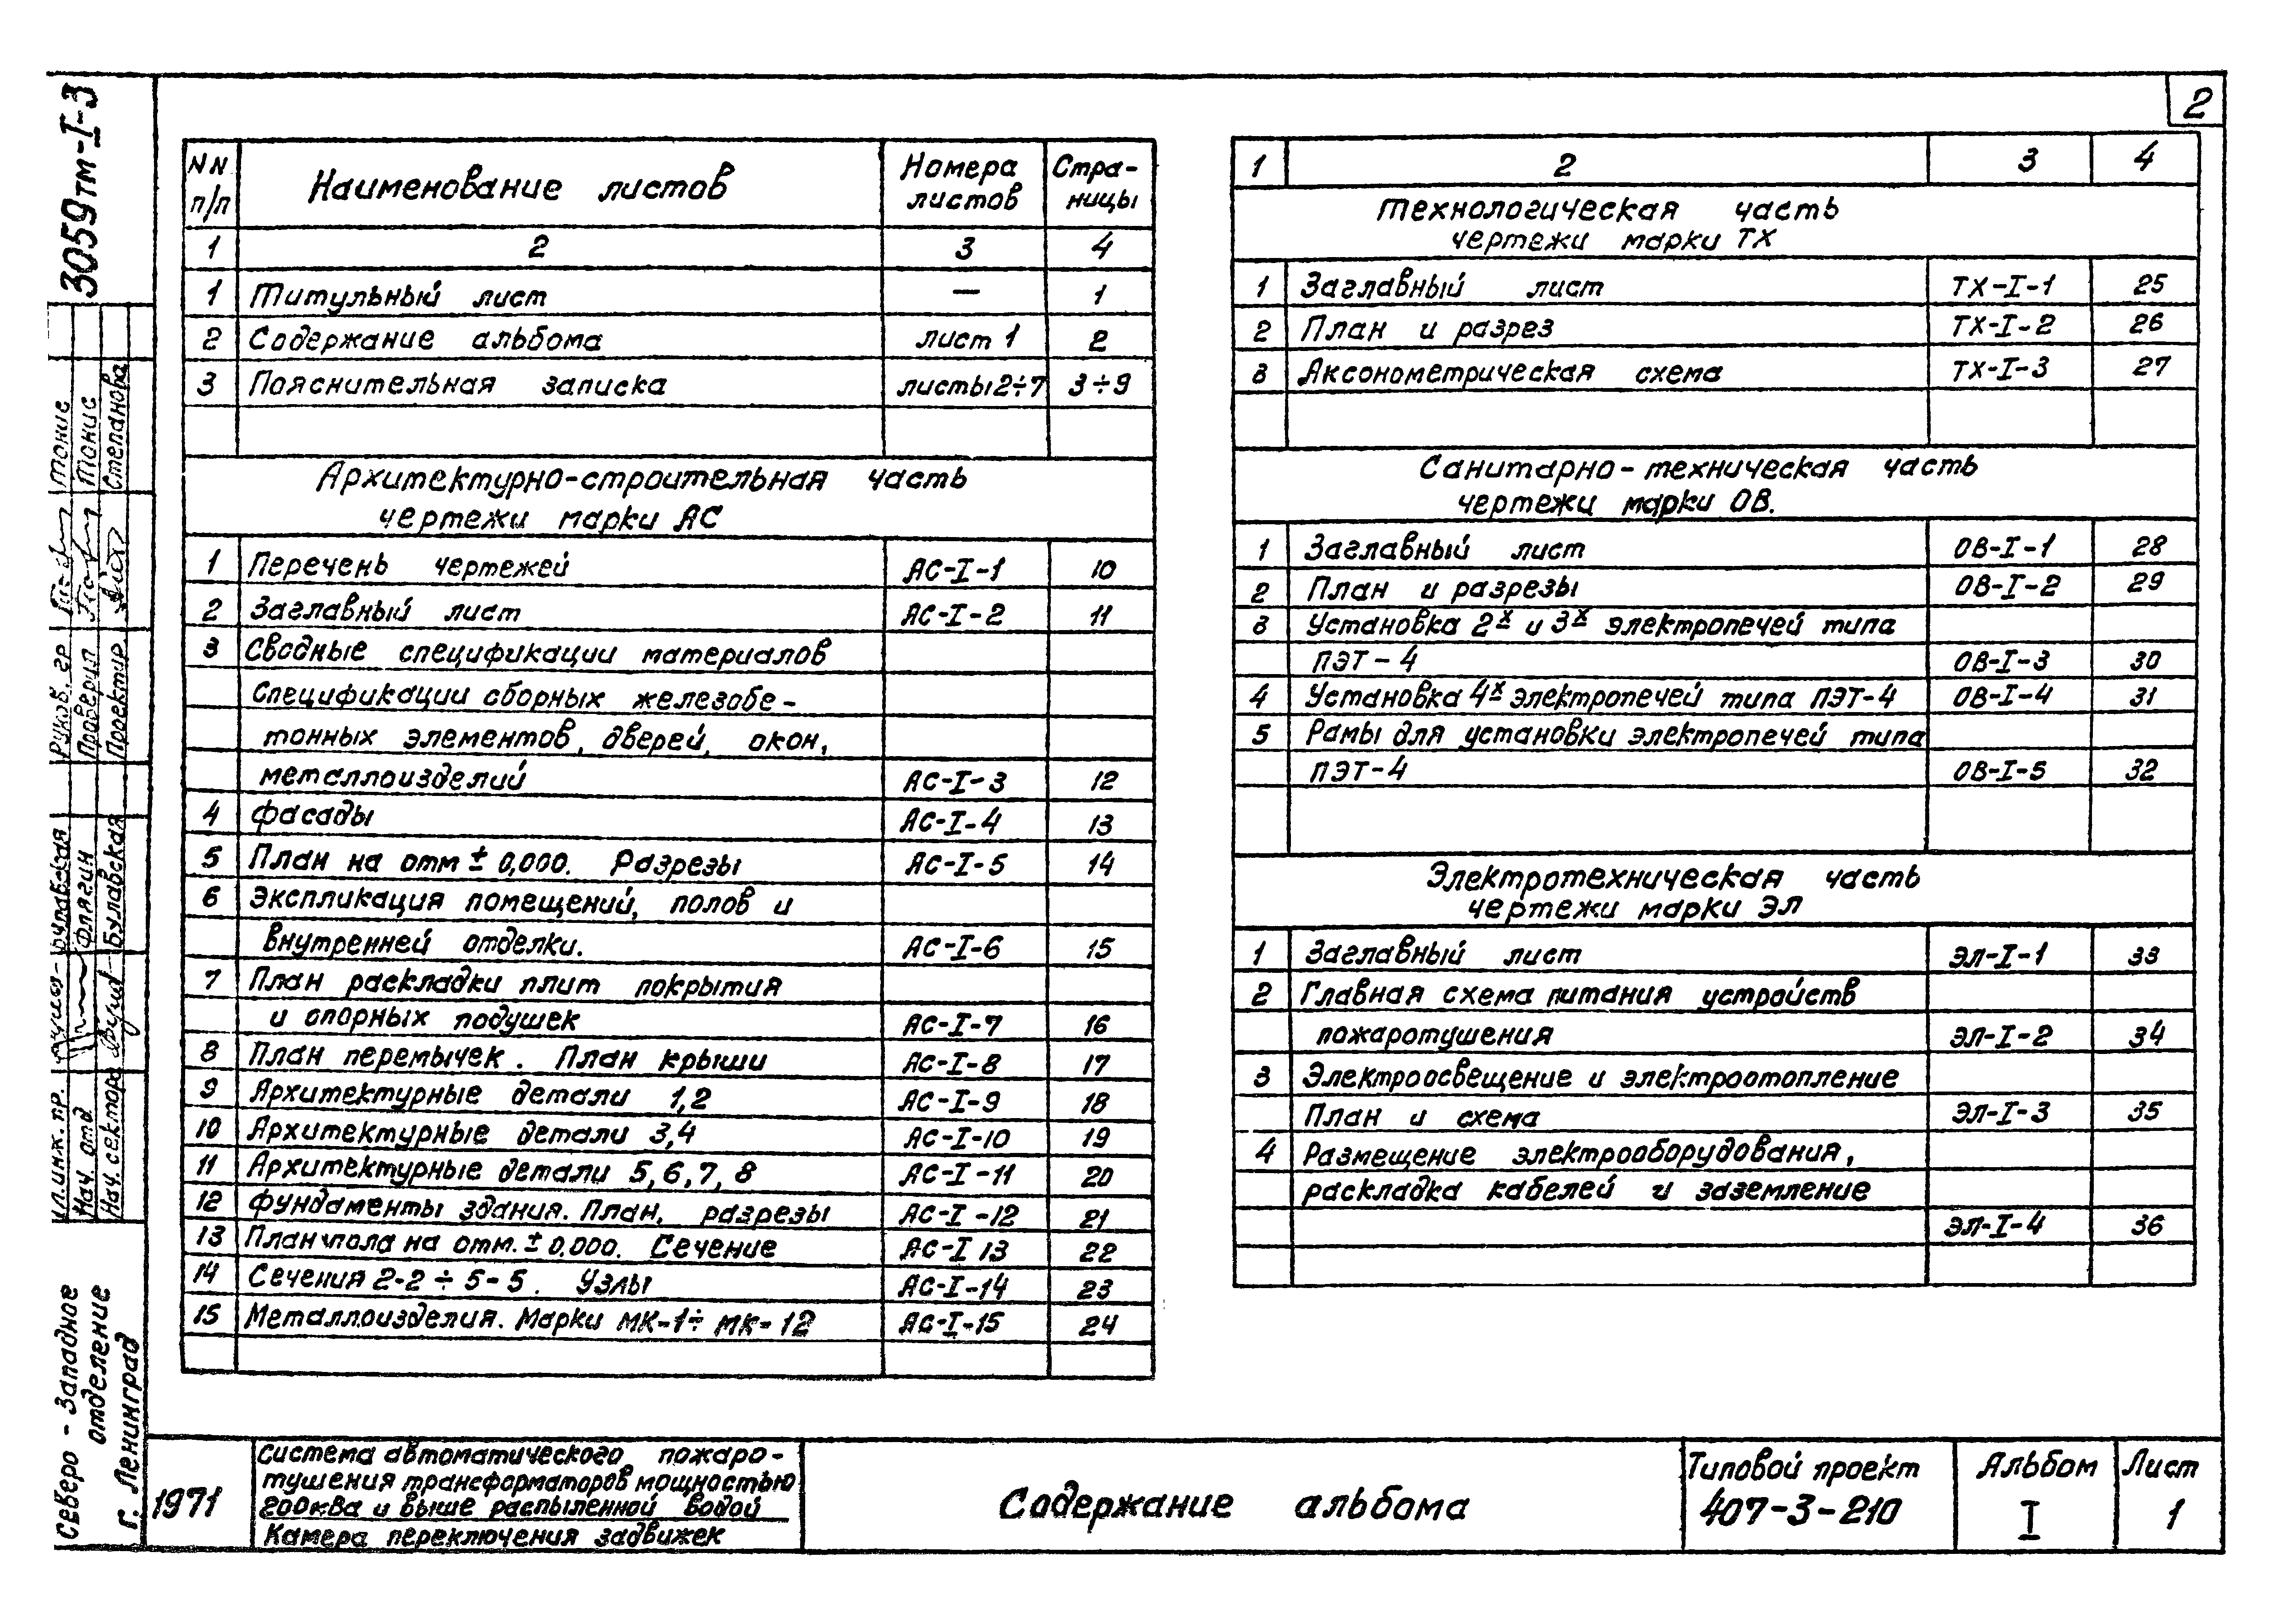 2
3059тм-I-3
NN п/п Наименование листов Номера листов Стра-ницы
1 2 3 4
1 Титульный лист — 1
2 Содержание альбома лист 1 2
3 Пояснительная записка листы 2÷7 3÷9
Архитектурно-строительная часть
чертежи марки АС
1 Перечень чертежей АС-I-1 10
2 Заглавный лист АС-I-2 11
3 Сводные спецификации материалов
Спецификации сборных железобе-
тонных элементов, дверей, окон,
металлоизделий АС-I-3 12
4 Фасады АС-I-4 13
5 План на отм ± 0,000. Разрезы АС-I-5 14
6 Экспликация помещений, полов и
внутренней отделки. АС-I-6 15
7 План раскладки плит покрытия
и опорных подушек АС-I-7 16
8 План перемычек. План крыши АС-I-8 17
9 Архитектурные детали 1,2 АС-I-9 18
10 Архитектурные детали 3,4 АС-I-10 19
11 Архитектурные детали 5,6,7,8 АС-I-11 20
12 Фундаменты здания. План, разрезы АС-I-12 21
13 План пола на отм. ± 0,000. Сечение АС-I 13 22
14 Сечения 2-2 ÷ 5-5. Узлы АС-I-14 23
15 Металлоизделия. Марки МК-1÷ МК-12 АС-I-15 24
1 2 3 4
Технологическая часть
чертежи марки ТХ
1 Заглавный лист ТХ-I-1 25
2 План и разрез ТХ-I-2 26
3 Аксонометрическая схема ТХ-I-3 27
Санитарно-техническая часть
чертежи марки ОВ.
1 Заглавный лист ОВ-I-1 28
2 План и разрезы ОВ-I-2 29
3 Установка 2х и 3х электропечей типа
ПЭТ-4 ОВ-I-3 30
4 Установка 4х электропечей типа ПЭТ-4 ОВ-I-4 31
5 Рамы для установки электропечей типа
ПЭТ-4 ОВ-I-5 32
Электротехническая часть
чертежи марки ЭЛ
1 Заглавный лист ЭЛ-I-1 33
2 Главная схема питания устройств
пожаротушения ЭЛ-I-2 34
3 Электроосвещение и электроотопление
План и схема ЭЛ-I-3 35
4 Размещение электрооборудования,
раскладка кабелей и заземление
ЭЛ-I-4 36
Руков. гр Тонис
Проверил Тонис
Проектир. Степанова
Гл. инж. пр.
Нач. отд Флягин
Нач. сектора Булавская
Северо-Западное
отделение
г. Ленинград
1971
Система автоматического пожаро-
тушения трансформаторов мощностью
200ква и выше распыленной водой
Камера переключения задвижек
Содержание альбома
Типовой проект
407-3-210
Альбом
I
Лист
1